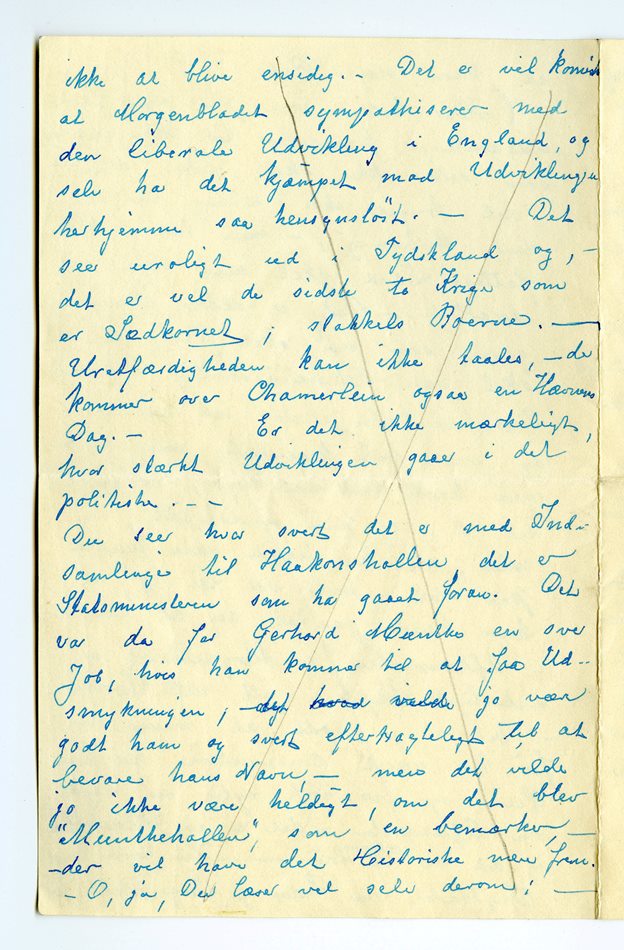 ikke at blive ensidig. – Det er vel
at Morgenbladet sympathiserer med
den liberale Udvikling i England, og
selv ha det kjæmpet mod Udviklingen
herhjemme saa hensynsløst. — Det
seer uroligt ud i Tydskland og, –
det er vel de sidste to Krige som
er Sædkornet, stakkels Boerne. —
Uretfærdigheden kan ikke taales, – de
kommer over Chamerlein ogsaa en Hævnens
Dag. – Er det ikke mærkeligt,
hvor stærkt Udviklingen gaaer i det
politiske. – –
Du seer hvor svert det er med Ind-
samlinge til Haakonshallen, det er
Statsministeren som ha gaaet foran. Det
var da for Gerhard Munthe en sver
Job, hvis han kommer til at faa Ud-
smykningen, – det hvad vilde jo vær
godt ham og svert eftertragteligt til at
bevare hans Navn, – men det vilde
jo ikke være heldigt, om det blev
"Munthehallen", som en bemærker, –
– der vil have det Historiske mere frem.
– O, ja, Du læser vel selv derom; —